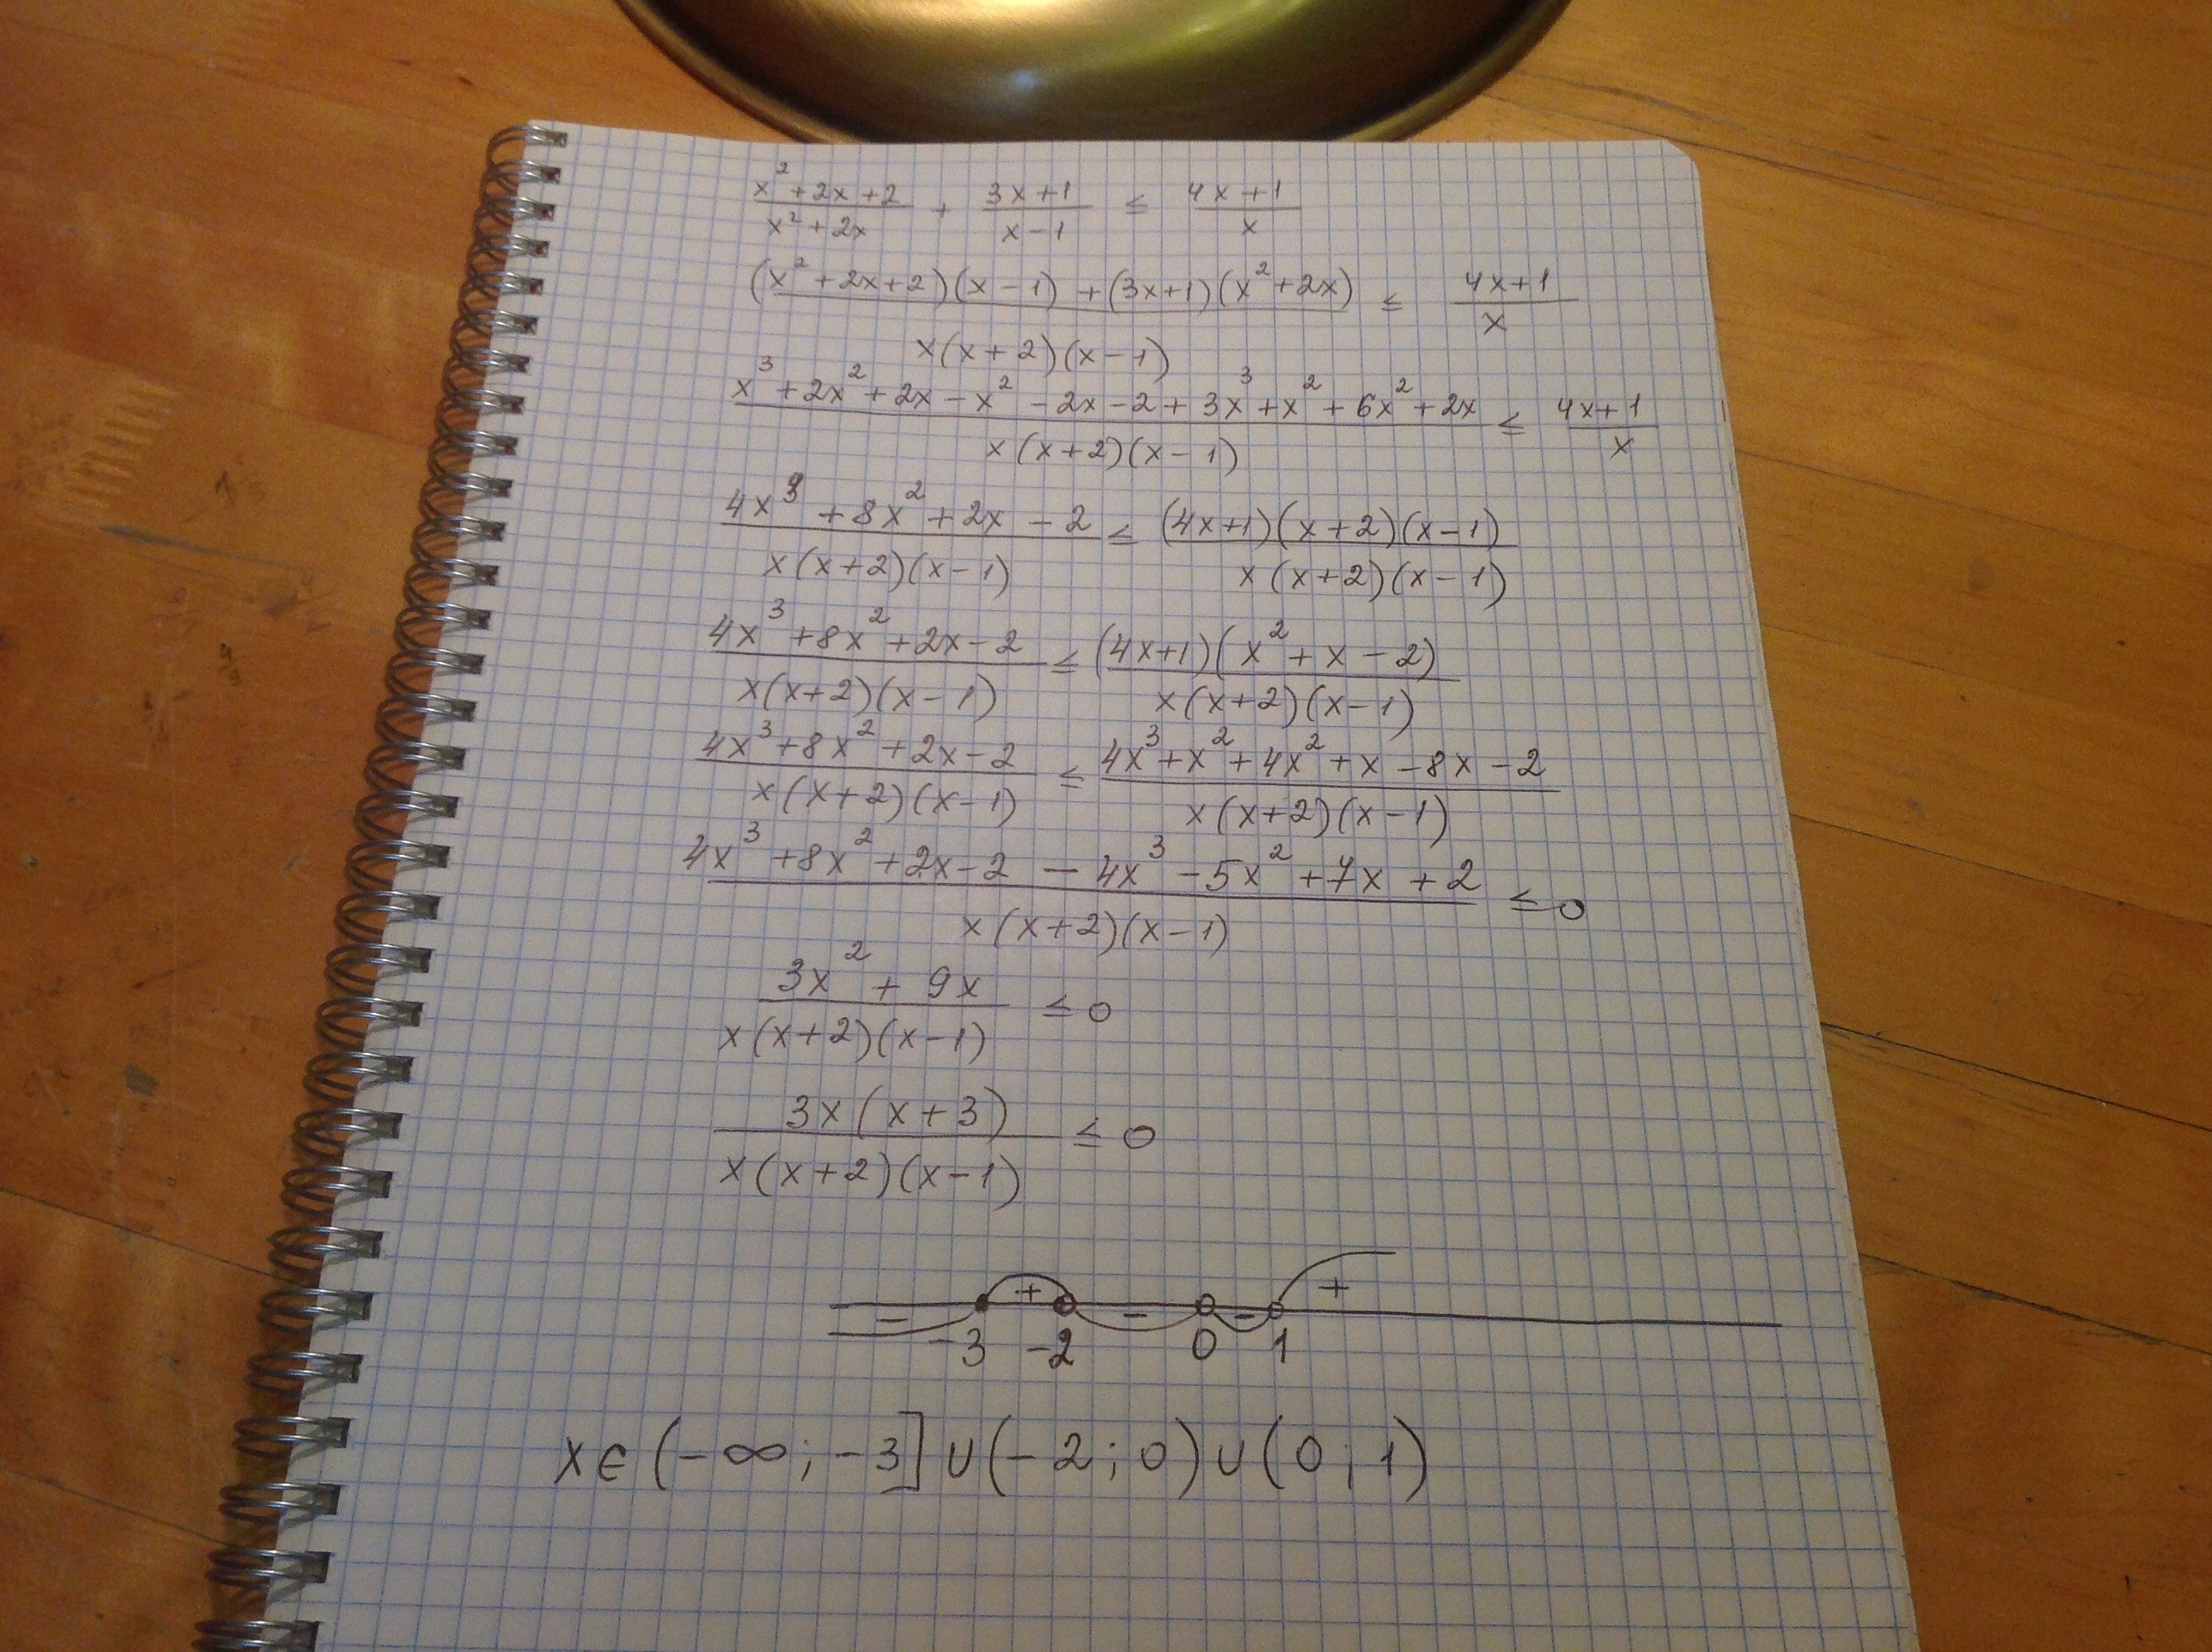 (x² + 2x + 2)/(x² + 2x) + (3x + 1)/(x - 1) ≤ (4x + 1)/x
((x² + 2x + 2)(x - 1) + (3x + 1)(x² + 2x))/(x(x + 2)(x - 1)) ≤ (4x + 1)/x
(x³ + 2x² + 2x - x² - 2x - 2 + 3x³ + x² + 6x² + 2x)/(x(x + 2)(x - 1)) ≤ (4x + 1)/x
(4x³ + 8x² + 2x - 2)/(x(x + 2)(x - 1)) ≤ ((4x + 1)(x + 2)(x - 1))/(x(x + 2)(x - 1))
(4x³ + 8x² + 2x - 2)/(x(x + 2)(x - 1)) ≤ ((4x + 1)(x² + x - 2))/(x(x + 2)(x - 1))
(4x³ + 8x² + 2x - 2)/(x(x + 2)(x - 1)) ≤ (4x³ + x² + 4x² + x - 8x - 2)/(x(x + 2)(x - 1))
(4x³ + 8x² + 2x - 2 - 4x³ - 5x² + 7x + 2)/(x(x + 2)(x - 1)) ≤ 0
(3x² + 9x)/(x(x + 2)(x - 1)) ≤ 0
(3x(x + 3))/(x(x + 2)(x - 1)) ≤ 0
- + - - +
-3 -2 0 1
x ∈ (-∞; -3] ∪ (-2; 0) ∪ (0; 1)